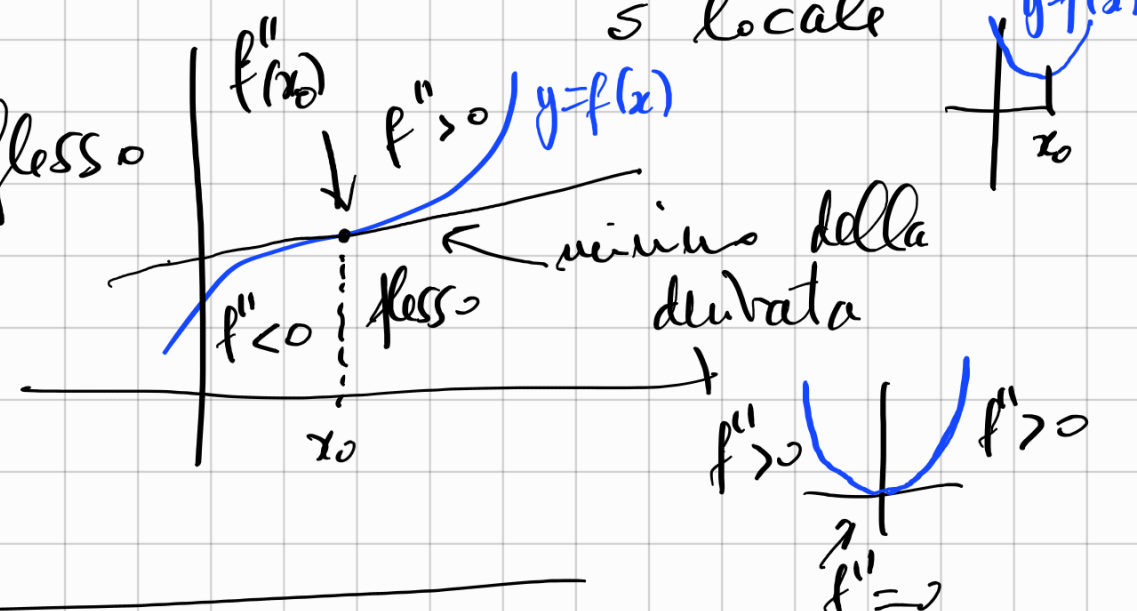 s locale
y=f(x)
x₀
f''(x₀)
f''>0
y=f(x)
flesso
minimo della
derivata
f''<0
flesso
x₀
f''>0
f''>0
f''=0